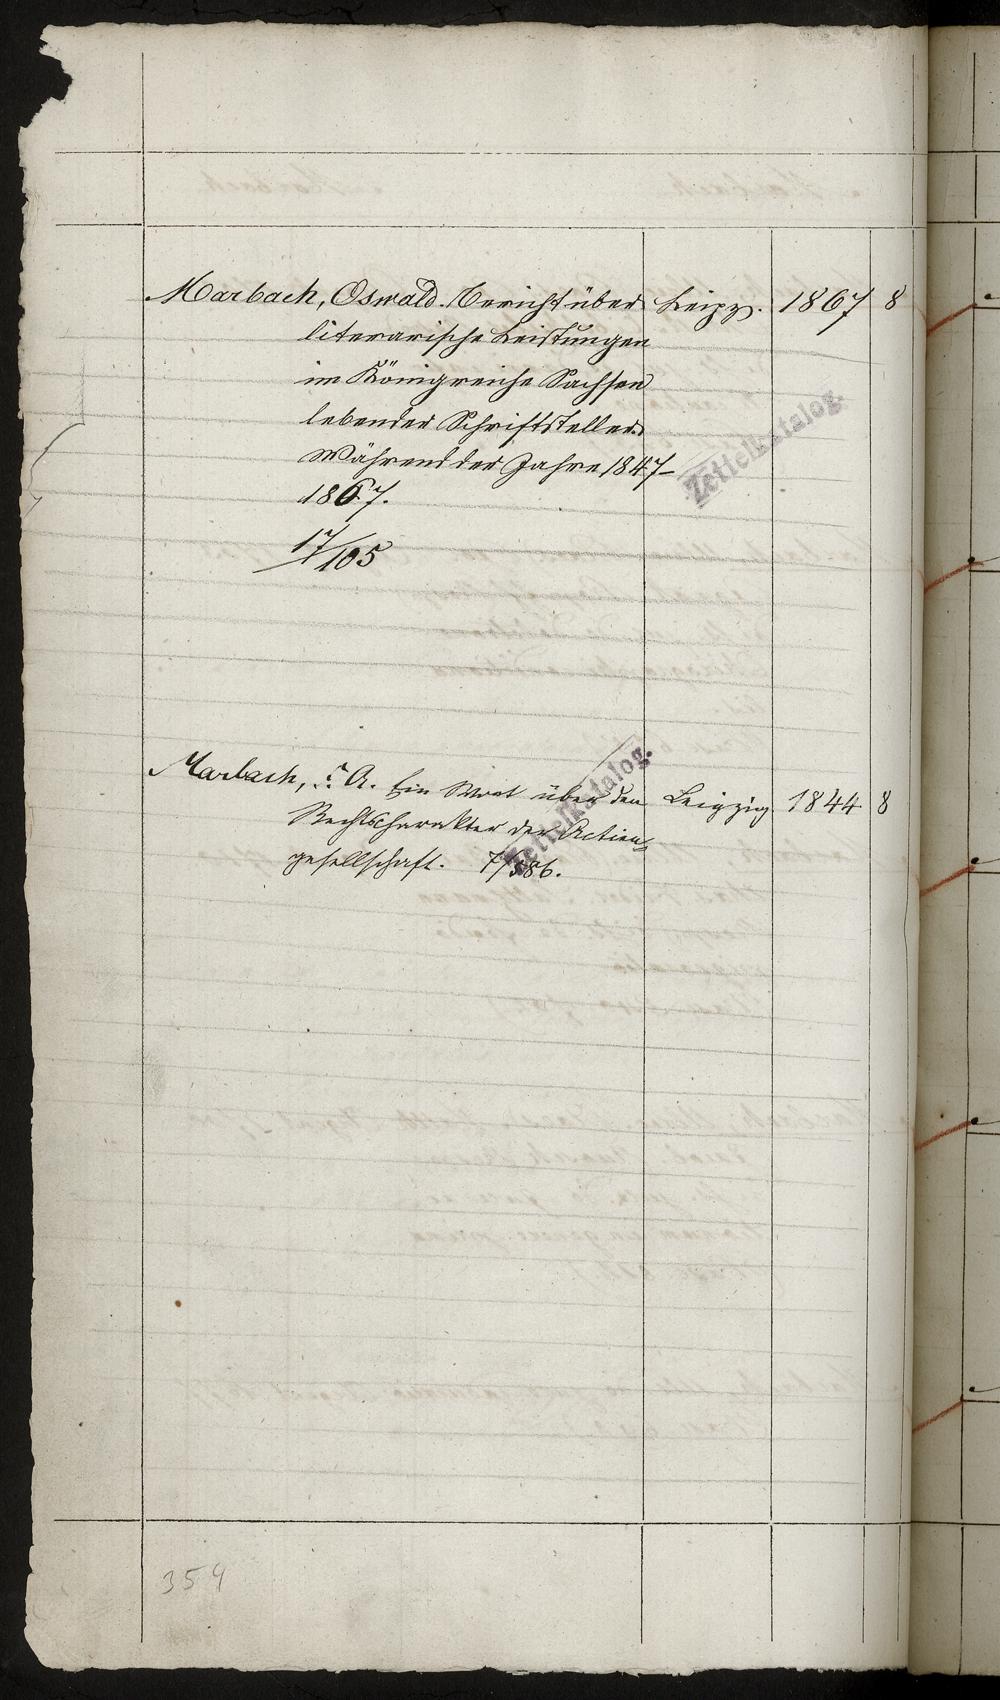 Marbach, Oswald. Bericht über Leipz. 1867 8
literarische Leistungen
im Königreiche Sachsen
lebender Schriftsteller
Während der Jahre 1847–
1867.
17/105
Zettelkatalog.
Marbach, A. Ein Wort über den Leipzig 1844 8
Rechtscharakter der Actien-
gesellschaft. 7/586.
Zettelkatalog.
354